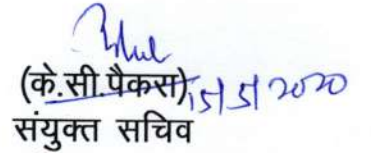 (के.सी.पैकस) 15/5/2020
संयुक्त सचिव